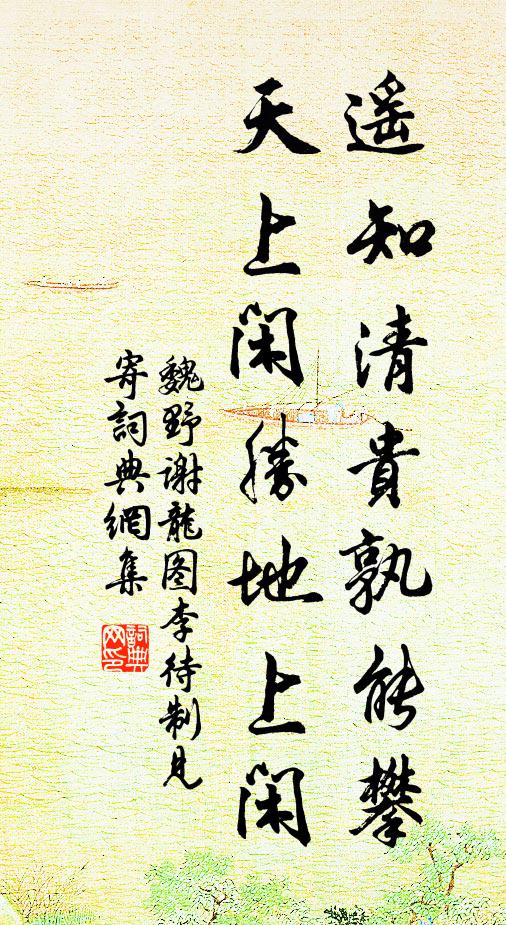 遥知清貴孰能攀
天上閑勝地上閑
魏野谢龍图李待制見
寄詞典網集
詞典
网印